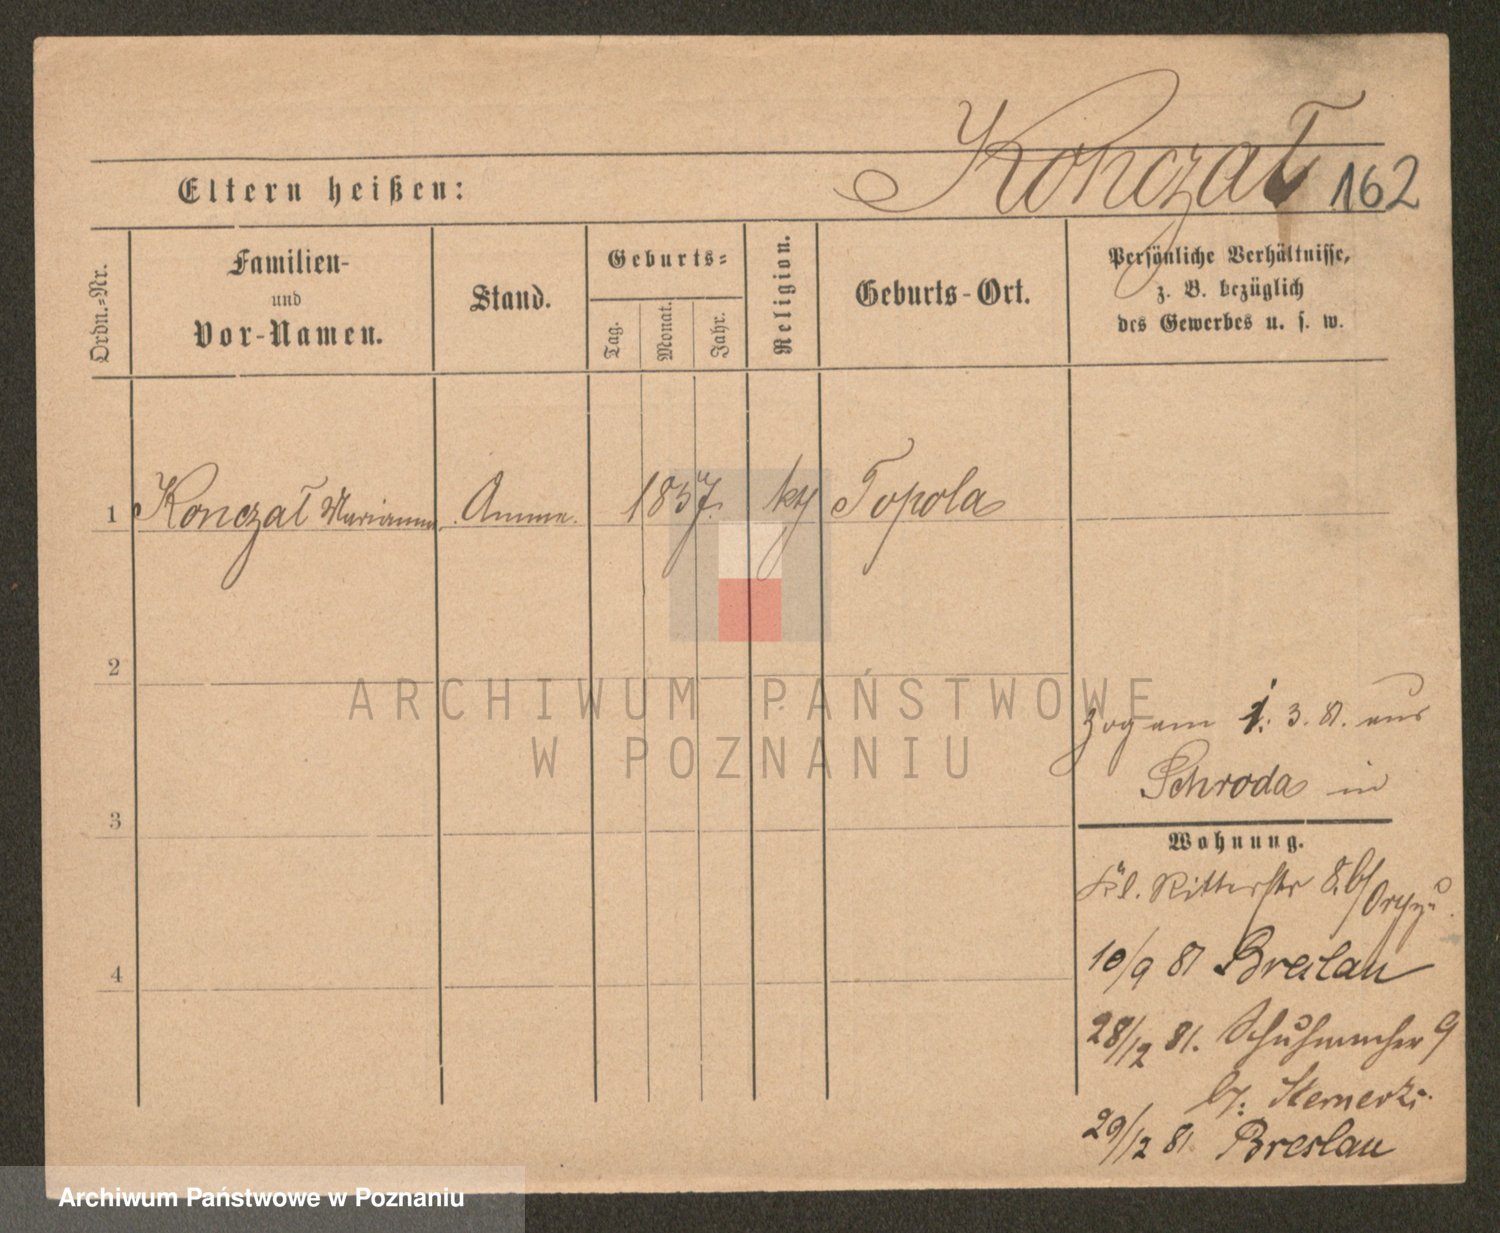 Konczał 162
Eltern heißen:
Ordn.-Nr.
Familien-
und
Vor-Namen.
Stand.
Geburts-
Tag.
Monat.
Jahr.
Religion.
Geburts-Ort.
Persönliche Verhältnisse,
z. B. bezüglich
des Gewerbes u. s. w.
1 Konczał Marianna Amme. 1857. kth Topola
2
3
4
zog am 1. 3. 81. aus
Schroda in
Wohnung.
Kl. Ritterstr 8. b/
10/9 81 Breslau
28/12 81. Schuhmacher 9
b/:
29/12 81 Breslau
ARCHIWUM PAŃSTWOWE
W POZNANIU
Archiwum Państwowe w Poznaniu